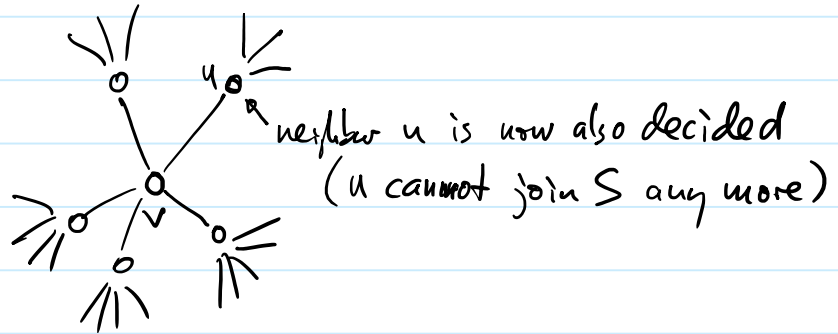 u
neighbor u is now also decided
(u cannot join S any more)
v